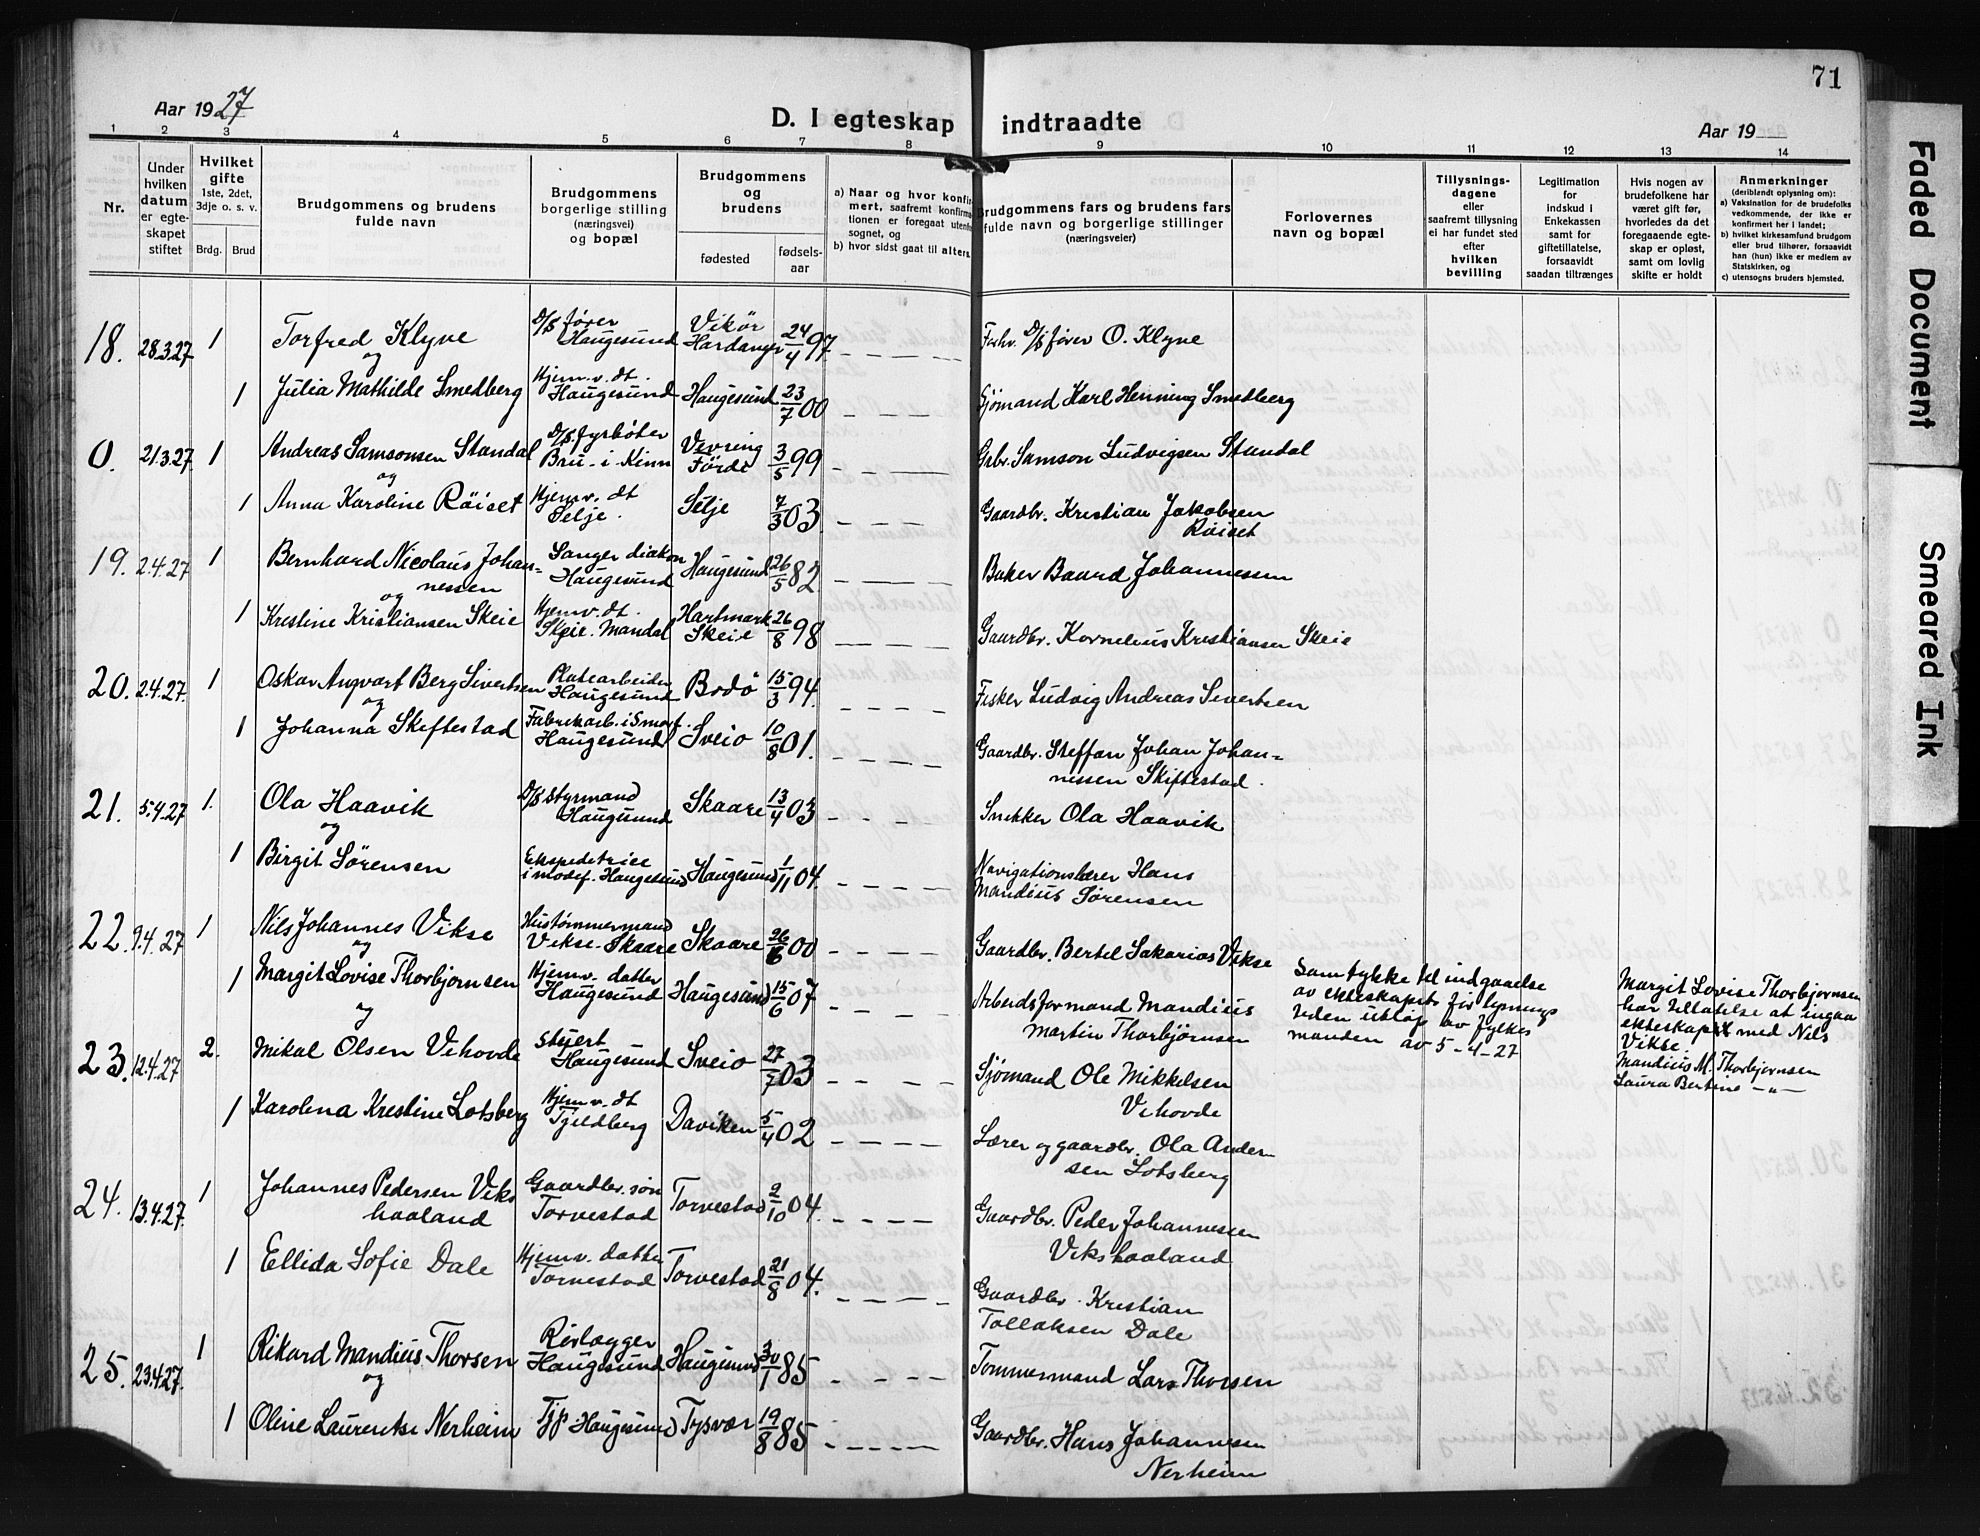 71
Aar 1927
D. I egteskap indtraadte
Aar 19
1 2 3 4 5 6 7 8 9 10 11 12 13 14
Nr.
Under hvilken datum er egteskapet stiftet
Hvilket gifte 1ste, 2det, 3dje o. s. v.
Brdg. Brud
Brudgommens og brudens fulde navn
Brudgommens borgerlige stilling (næringsvei) og bopæl
Brudgommens og brudens
fødested
fødselsaar
a) Naar og hvor konfirmert, saafremt konfirmationen er foregaat utenfor sognet, og
b) hvor sidst gaat til alters.
Brudgommens fars og brudens fars fulde navn og borgerlige stillinger (næringsveier)
Forlovernes navn og bopæl
Tillysningsdagene eller saafremt tillysning ei har fundet sted efter hvilken bevilling
Legitimation for indskud i Enkekassen samt for giftetillatelse, forsaavidt saadan tiltrænges
Hvis nogen av brudefolkene har været gift før, hvorledes da det foregaaende egteskap er opløst, samt om lovlig skifte er holdt
Anmerkninger (deriblandt oplysning om):
a) Vaksination for de brudefolks vedkommende, der ikke er konfirmert her i landet;
b) hvilket kirkesamfund brudgom eller brud tilhører, forsaavidt han (hun) ikke er medlem av Statskirken, og
c) utensogns bruders hjemsted.
18. 28.3.27 1 Torfred Klyve D/S fører Haugesund Vikör Hardanger 24/4 97. Forhv. D/S fører O. Klyve
og
1 Julia Mathilde Smedberg Hjemv. dt. Haugesund Haugesund 23/7 00 Sjømand Karl Henning Smedberg
0. 21.3.27 1 Andreas Samsonsen Standal D/S fyrbøter Bru i Kinn Vevring Førde 3/5 99 Grbr. Samson Ludvigsen Standal
og
1 Anna Karoline Röiset Hjemv. dt Selje. Selje 7/3 03 Gaardbr. Kristian Jakobsen Röiset
19. 2.4.27 1 Bernhard Nicolaus Johannessen Sanger diakon Haugesund Haugesund 26/5 82 Baker Baard Johannessen
og
1 Kristine Kristiansen Skeie Hjemv. dt. Skeie. Mandal Hartmark Skeie 26/8 98 Gaardbr. Kornelius Kristiansen Skeie
20. 2.4.27. 1 Oskar Angvart Berg Sivertsen Platearbeider Haugesund Bodö 15/3 94. Fisker Ludvig Andreas Sivertsen
og
1 Johanna Skeftestad Fabrikarb. i Smørf. Haugesund Sveio 10/8 01. Gaardbr. Steffan Johan Johannessen Skiftestad.
21. 5.4.27 1. Ola Haavik D/S styrmand Haugesund Skaare 13/4 03 Snekker Ola Haavik
og
1 Birgit Sörensen Ekspeditrice i modef. Haugesund Haugesund 1/11 04. Navigationslærer Hans Mandius Sörensen
22. 9.4.27 1 Nils Johannes Vikse Hustømmermand Vikse. Skaare Skaare 26/6 00 Gaardbr. Bertel Sakarias Vikse
og
1 Margit Lovise Thorbjørnsen Hjemv. datter Haugesund Haugesund 15/6 07 Arbeidsformand Mandius Martin Thorbjørnsen
Samtykke til indgaaelse av ekteskapet før lysnings tiden utløp av fylkesmanden av 5-4-27
Margit Lovise Thorbjørnsen har tillatelse at ingaa ekteskapet med Nils Vikse.
Mandius M. Thorbjørnsen
Laura Bertine — „ —
og
23. 12.4.27 2. Mikal Olsen Vihovde Stuert Haugesund Sveio 27/7 03 Sjømand Ole Mikkelsen Vihovde
1 Karolina Kristine Lotsberg Hjemv. dt Tjeldberg Daviken 5/4 02 Lærer og gaardbr. Ola Andersen Lotsberg
24. 13.4.27. 1 Johannes Pedersen Vikshaaland Gaardbr. søn Torvestad Torvestad 2/10 04. Gaardbr. Peder Johannessen Vikshaaland
1 Ellida Sofie Dale Hjemv. datter Torvestad Torvestad 21/8 04. Gaardbr. Kristian Tollaksen Dale
25. 23.4.27. 1 Rikard Mandius Thorsen Rørlægger Haugesund Haugesund 30/1 85 Tømmermand Lars Thorsen
og
1 Oline Laurentse Nerheim Tjp. Haugesund Tysvær 19/8 85 Gaardbr. Hans Johannesen Nerheim
Faded Document
Smeared Ink